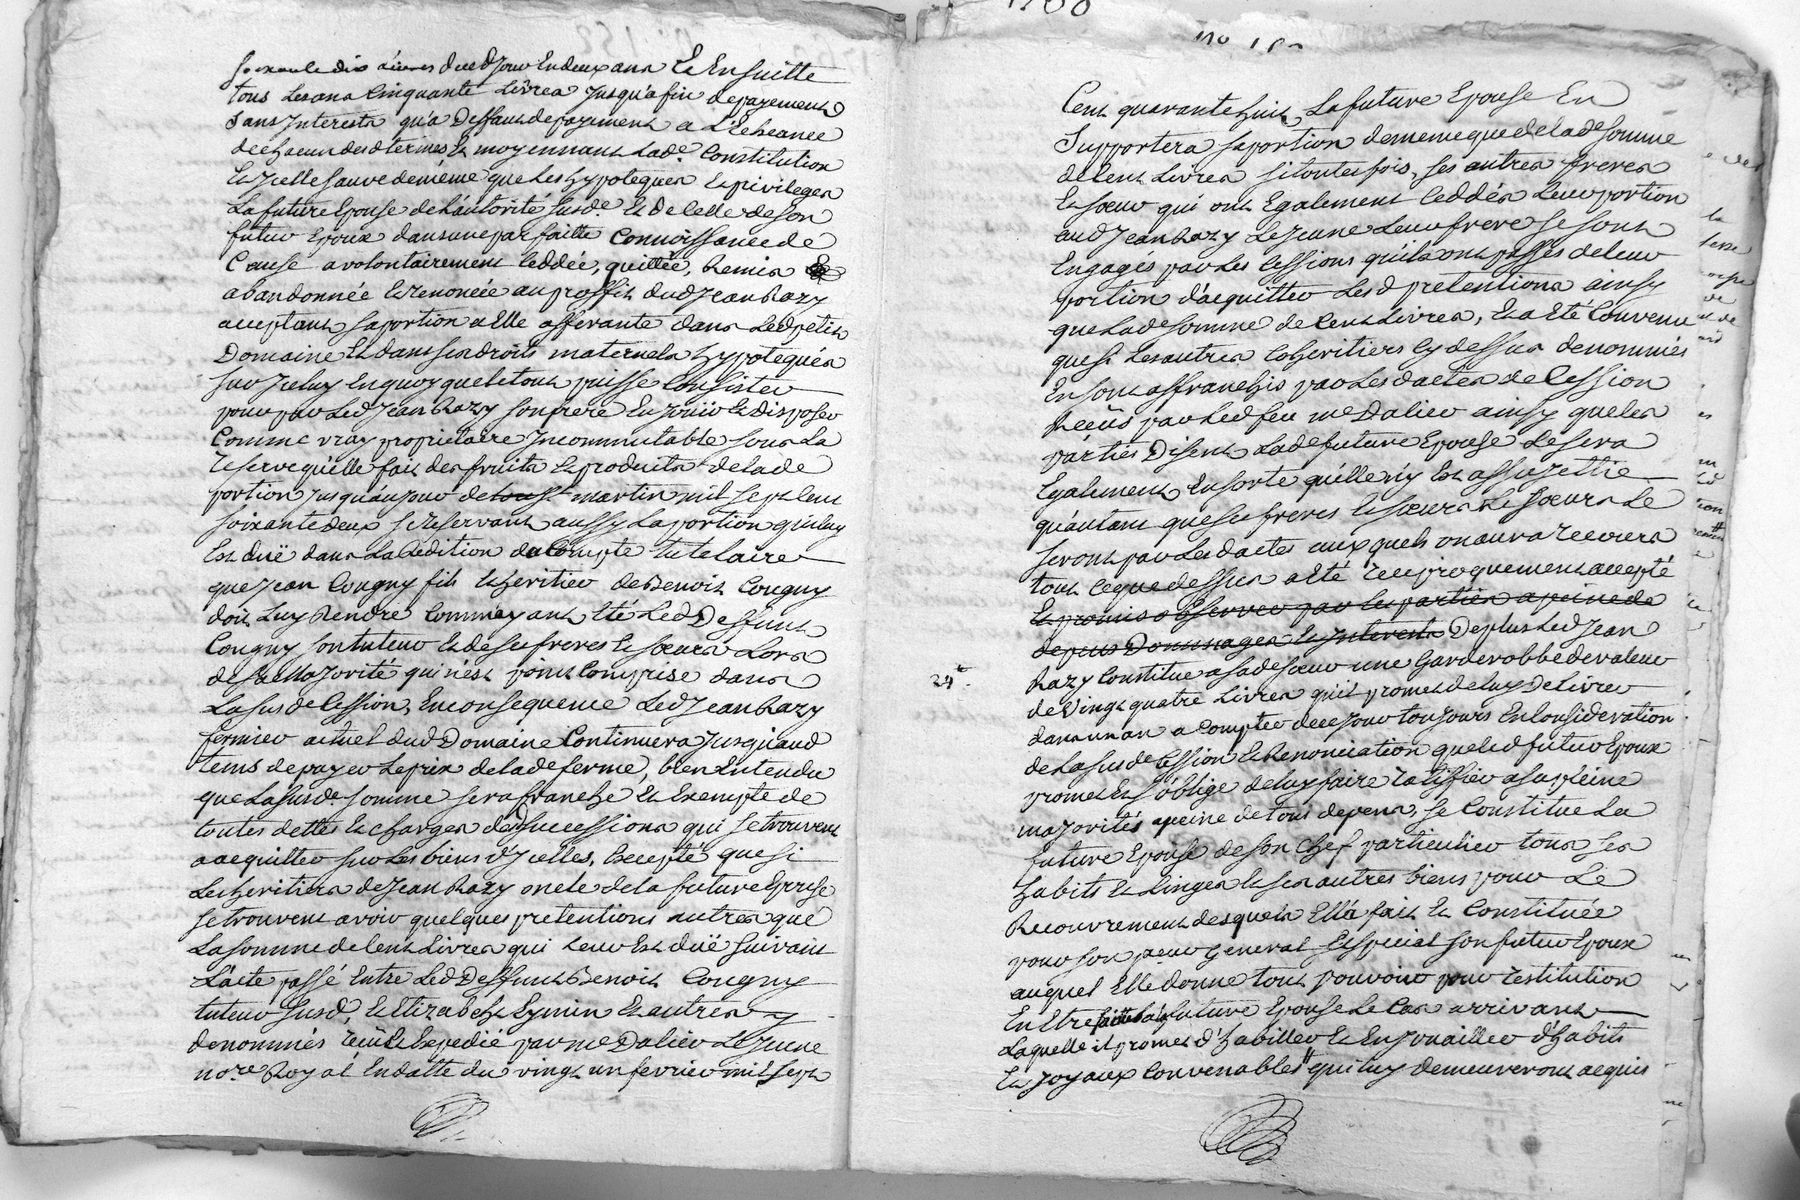 soixante dix livres dud Jour En deux ans Et Ensuitte
tous Les ans Cinquante Livres Jusqu'a fin de payement
sans Interests qu'a Deffaut de payement a L'Echeance
de chacun desd termes Et moyennant Lade. Constitution
Et Icelle sauve de même que Les hypoteques Et privileges
La future Epouse de L'autorité susde. Et de Celle de son
futur Epoux dans une parfaitte Connoissance de
Cause a volontairement Ceddée, quittée, Remis
abandonnée Et renoncée au proffit dud Jean Razy
acceptant sa portion a Elle afferante dans Led petit
Domaine Et dans ses droits maternels hypotequés
sur Iceluy En quoy que le tout puisse Consister
pour par Led Jean Razy son frere En Jouir Et Disposer
Comme vray proprietaire Incommutable sous La
reserve qu'elle fait des fruits Et produits de lade
portion Jusqu'au Jour de st martin mil sept Cent
soixante deux se reservant aussy La portion qui luy
Est duë dans La Reddition du Compte tutelaire
que Jean Cougny fils Et heritier de Benoit Cougny
doit Luy Rendre Comme ayant Eté Led Deffunt
Cougny son tuteur Et de ses freres Et sœurs Lors
de sa Majorité qui n'est point Comprise dans
La susde Cession, En consequence Led Jean Razy
fermier actuel dud Domaine Continuera Jusqu'aud
tems de payer Le prix de lade ferme, bien Entendu
que La susde. somme sera franche Et Exempte de
toutes dettes Et charges desd successions qui se trouvent
a acquitter sur Les biens d'Icelles, Excepté que si
Les heritiers de Jean Razy oncle de la future Epouse
se trouvent avoir quelques pretentions autres que
La somme de Cent Livres qui Leur Est duë suivant
L'acte passé Entre Led Deffunt Benoit Cougny
tuteur susd, Et Elizabeth Eymin Et autres y
denommés reçû Et Expedié par me Dalier Le Jeune
nore. Royal En datte du vingt un fevrier mil sept
Cent quarante huit, La future Epouse En
supportera sa portion de meme que de lade somme
de Cent Livres si toutes fois, ses autres freres
Et sœur qui ont Egalement Ceddés Leur portion
aud Jean Razy Le Jeune Leur frere se sont
Engagés par Les Cessions qu'ils ont passés de leur
portion d'acquitter Lesd pretentions ainsy
que Lade somme de Cent Livres, Et a Eté Convenu
que si Les autres Coheritiers Cy dessus denommés
En sont affranchis par Lesd actes de Cession
Reçûs par Led feu me Dalier ainsy que Les
parties Disent Lade future Epouse Le sera
Egalement En sorte qu'elle n'y Est assujettie
qu'autant que ses freres Et sœurs Le
seront par Lesd actes auxquels on aura recours
tout Ce que dessus a Eté reciproquement accepté
Et promis observer par Les parties a peine de
depens Dommages Et Interests De plus Led Jean
24#. Razy Constitue a sade sœur une Garderobbe de valeur
de Vingt quatre Livres qu'il promet de luy Delivrer
dans un an a Compter de ce Jour toujours En Consideration
de La susde Cession Et Renonciation que led futur Epoux
promet Et s'oblige de luy faire ratiffier a sa pleine
majorités a peine de tous depens, se Constitue La
future Epouse de son Chef particulier tous ses
habits Et Linges Et ses autres biens pour Le
Recouvrement desquels Ell'a fait Et Constituée
pour son pour General Et special son futur Epoux
auquel Elle donne tout pouvoir pour restitution
En Etre faitte a la future Epouse Le Cas arrivant
Laquelle il promet d'habiller Et En Jouailler d'habits
Et Joyaux Convenables qui luy demeureront acquis